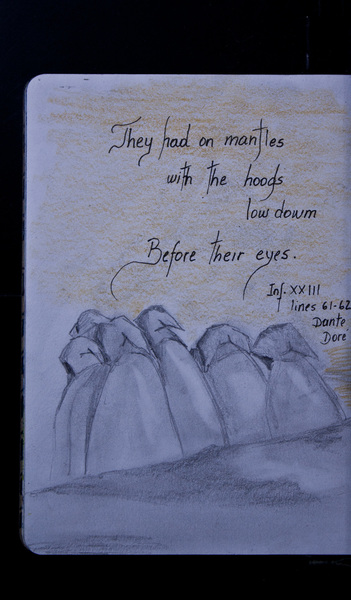 They had on mantles
with the hoods
low down
Before their eyes.
Inf. XXIII
lines 61-62
Dante
Dore